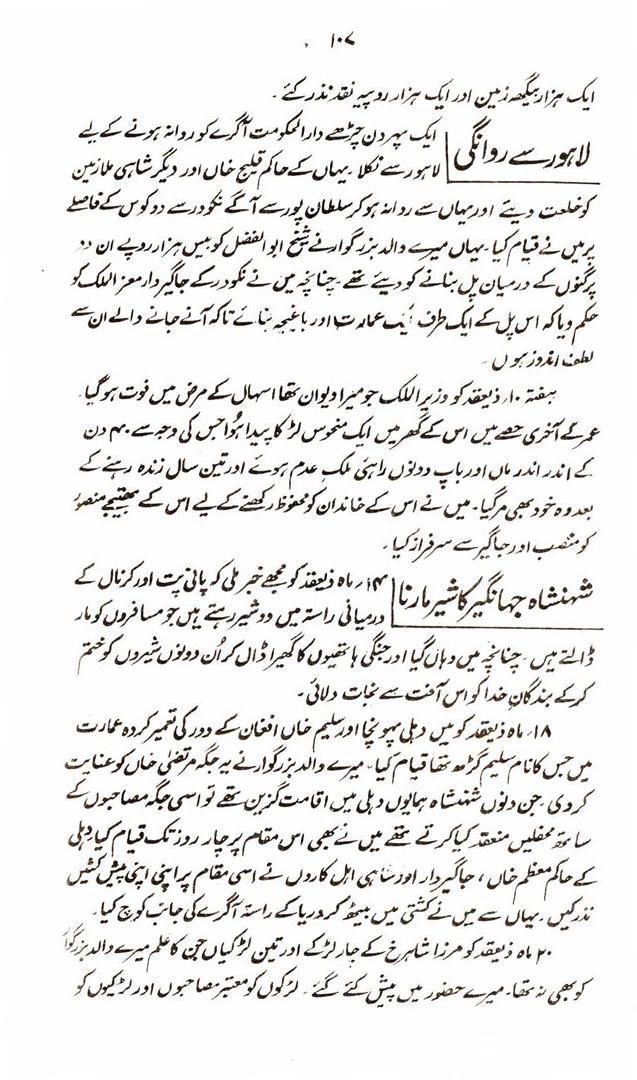 ۱۰۷
ایک ہزار بیگھہ زمین اور ایک ہزار روپیہ نقد نذر کئے۔
لاہور سے روانگی
ایک پہر دن چڑھے دارالحکومت آگرے کو روانہ ہونے کے لیے
لاہور سے نکلا۔ یہاں کے حاکم قلیج خاں اور دیگر شاہی ملازمین
کو خلعت دیئے اور یہاں سے روانہ ہو کر سلطان پور سے آگے نکودر سے دو کوس کے فاصلے
پر میں نے قیام کیا۔ یہاں میرے والد بزرگوار نے شیخ ابوالفضل کو بیس ہزار روپے ان دو
پرگنوں کے درمیان پل بنانے کو دیئے تھے۔ چنانچہ میں نے نکودر کے جاگیردار معز الملک کو
حکم دیا کہ اس پل کے ایک طرف ایک عمارت اور باغیچہ بنائے تاکہ آنے جانے والے ان سے
لطف اندوز ہوں۔
ہفتہ ۱۰؍ ذیعقد کو وزیر الملک جو میرا دیوان تھا اسہال کے مرض میں فوت ہو گیا۔
عمر کے آخری حصے میں اس کے گھر میں ایک منحوس لڑکا پیدا ہوا جس کی وجہ سے ۴۰ دن
کے اندر اندر ماں اور باپ دونوں راہئی ملک عدم ہوئے اور تین سال زندہ رہنے کے
بعد وہ خود بھی مر گیا۔ میں نے اس کے خاندان کو محفوظ رکھنے کے لیے اس کے بھتیجے منصور
کو منصب اور جاگیر سے سرفراز کیا۔
شہنشاہ جہانگیر کا شیر مارنا
۱۴؍ ماہ ذیعقد کو مجھے خبر ملی کہ پانی پت اور کرنال کے
درمیانی راستہ میں دو شیر رہتے ہیں جو مسافروں کو مار
ڈالتے ہیں۔ چنانچہ میں وہاں گیا اور جنگی ہاتھیوں کا گھیرا ڈال کر اُن دونوں شیروں کو ختم
کر کے بندگانِ خدا کو اس آفت سے نجات دلائی۔
۱۸؍ ماہ ذیعقد کو میں دہلی پہونچا اور سلیم خاں افغان کے دور کی تعمیر کردہ عمارت
میں جس کا نام سلیم گڑھ تھا قیام کیا۔ میرے والد بزرگوار نے یہ جگہ مرتضیٰ خاں کو عنایت
کر دی۔ جن دنوں شہنشاہ ہمایوں دہلی میں اقامت گزین تھے تو اسی جگہ مصاحبوں کے
ساتھ محفلیں منعقد کیا کرتے تھے میں نے بھی اس مقام پر چار روز تک قیام کیا دہلی
کے حاکم معظم خاں، جاگیردار اور شاہی اہل کاروں نے اسی مقام پر اپنی اپنی پیش کشیں
نذر کیں۔ یہاں سے میں نے کشتی میں بیٹھ کر دریا کے راستہ آگرے کی جانب کوچ کیا۔
۲۰ ماہ ذیعقد کو مرزا شاہرخ کے چار لڑکے اور تین لڑکیاں جن کا علم میرے والد بزرگوار
کو بھی نہ تھا۔ میرے حضور میں پیش کئے گئے۔ لڑکوں کو معتبر مصاحبوں اور لڑکیوں کو